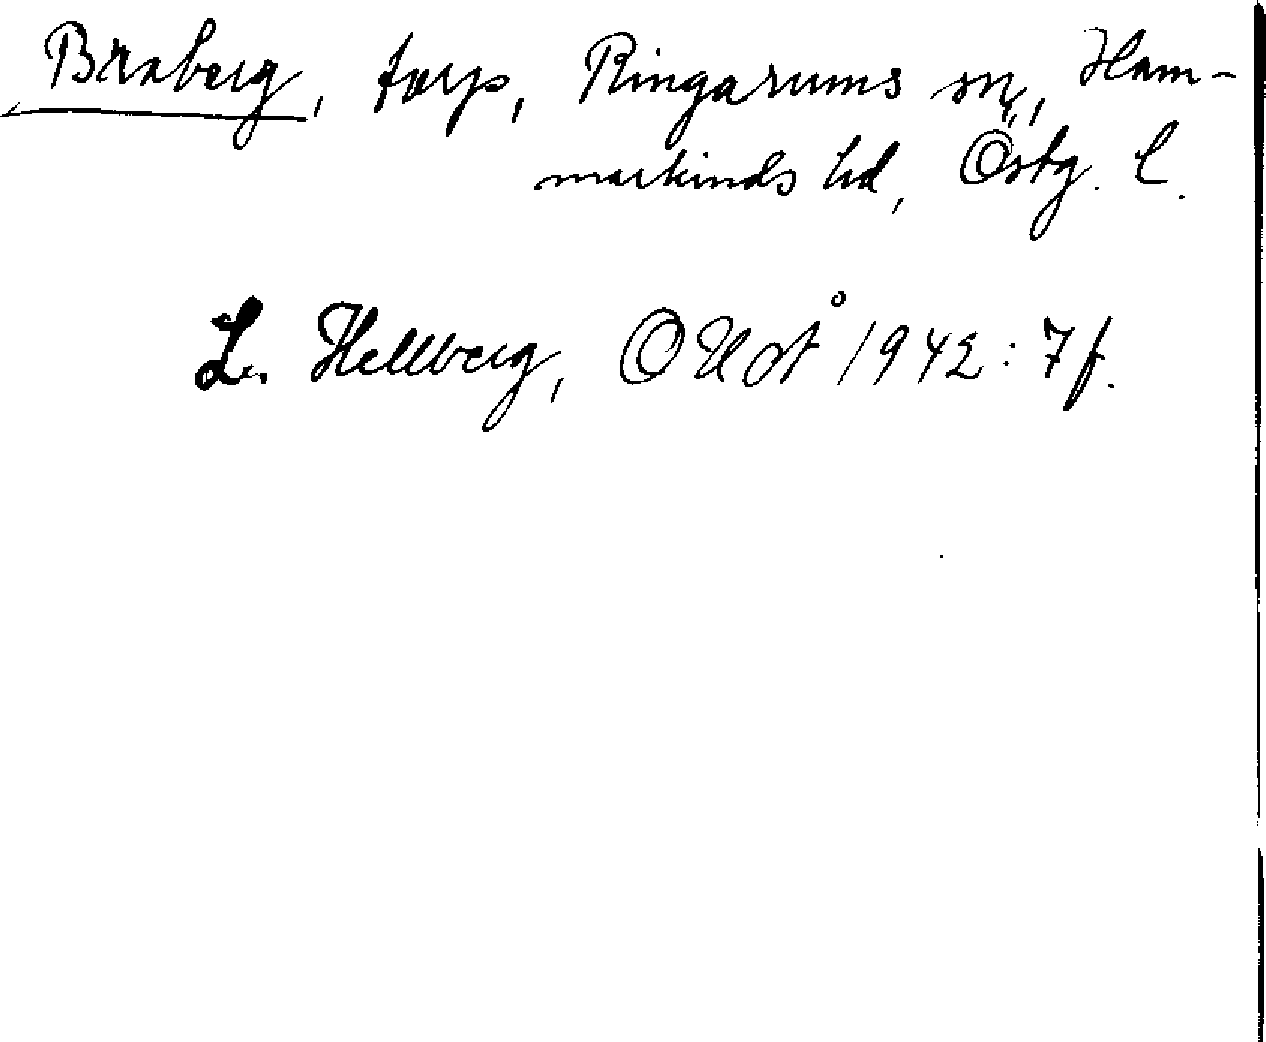 Braberg, torp, Ringarums sn, Ham-
markinds hd, Östg. l.
L. Hellberg, OUÅ 1942: 7 f.